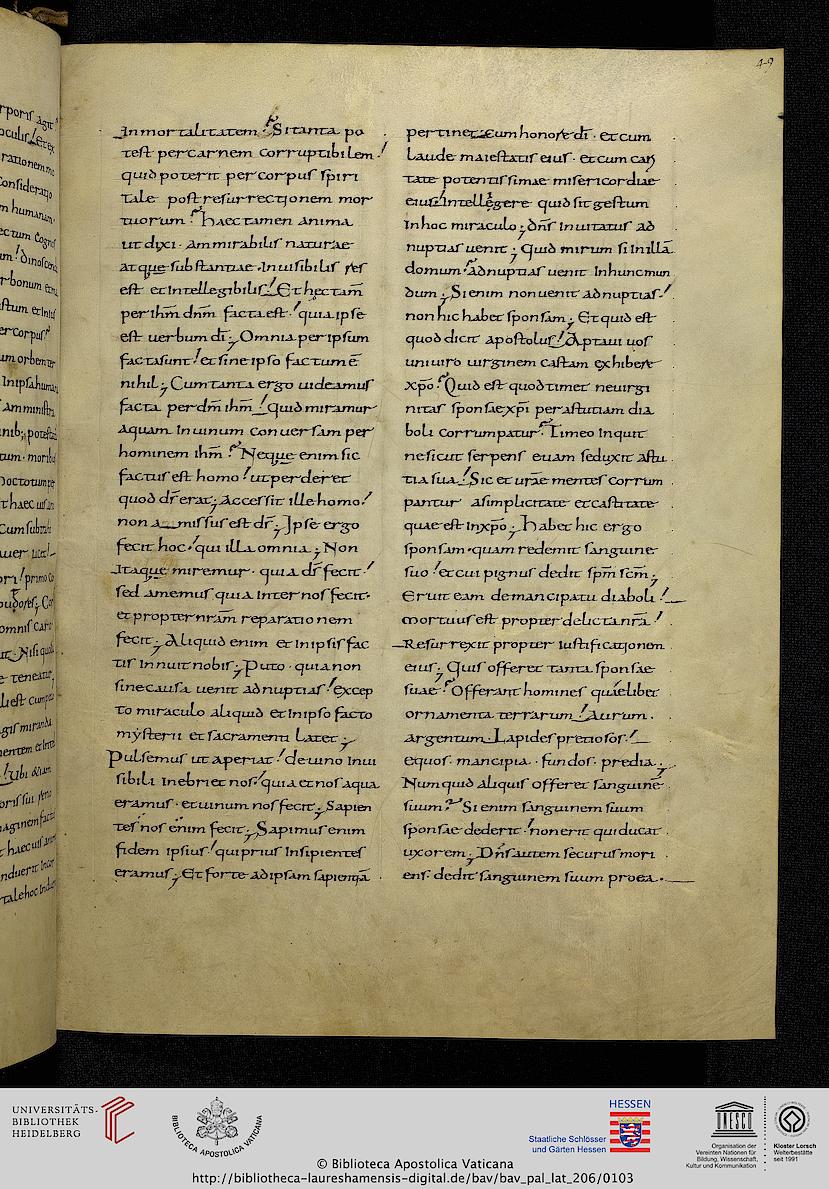 49
Inmortalitatem? Sitanta po
test percarnem corruptibilem!
quid poterit per corpus spiri
tale post resurrectionem mor
tuorum? haec tamen anima
ut dixi · ammirabilis naturae
atque substantiae · Inuisibilis res
est et intellegibilis! Et hęc tam̄
per ihm̄ dnm̄ facta est! quia ipse
est uerbum dī; Omnia per ipsum
facta sunt! et sine ipso factum ē
nihil; Cum tanta ergo uideamus
facta per dm̄ ihm̄! quid miramur
aquam in uinum conuersam per
hominem ihm̄? Neque enim sic
factus est homo! ut perderet
quod ds̄ erat; Accessit ille homo!
non amissus est ds̄; Ipse ergo
fecit hoc! qui illa omnia; Non
Itaque miremur · quia ds̄ fecit!
sed amemus quia inter nos fecit·
et propter nr̄am reparationem
fecit; Aliquid enim et in ipsis fac
tis innuit nobis; Puto · quia non
sine causa uenit ad nuptias! excep
to miraculo aliquid et in ipso facto
mysterii et sacramenti Latet;
Pulsemus ut aperiat! de uino Inui
sibili Inebriet nos! quia et nos aqua
eramus · et uinum nos fecit; Sapien
tes nos enim fecit; Sapimus enim
fidem ipsius! qui prius Insipientes
eramus; Et forte ad ipsam sapientiā
pertinet cum honore dī · et cum
Laude maiestatis eius · et cum cari
tate potentissimae misericordiae
eius! Intellegere quid sit gestum
In hoc miraculo; dns̄ Inuitatus ad
nuptias uenit; Quid mirum si in illā
domum? ad nuptias uenit In hunc mun
dum; Si enim non uenit ad nuptias!
non hic habet sponsam; Et quid est
quod dicit apostolus! Aptaui uos
uni uiro uirginem castam exhibere
xpō? Quid est quod timet ne uirgi
nitas sponsae xpī per astutiam dia
boli corrumpatur? Timeo Inquit
ne sicut serpens euam seduxit astu
tia sua! Sic et ur̄ae mentes corrum
pantur a simplicitate et castitate
quae est In xpō; Habet hic ergo
sponsam · quam redemit sanguine
suo! et cui pignus dedit sp̄m sc̄m;
Eruit eam de mancipatu diaboli!
Mortuus est propter delicta nr̄a!
Resurrexit propter Iustificationem
eius; Quis offeret tanta sponsae
suae? Offerant homines quaelibet
ornamenta terrarum! Aurum ·
argentum · Lapides pretiosos!
equos · mancipia · fundos · predia;
Numquid aliquis offeret sanguinē
suum? Si enim sanguinem suum
sponsae dederit! non erit qui ducat
uxorem; Dns̄ autem securus mori
ens · dedit sanguinem suum pro ea ·
UNIVERSITÄTS-
BIBLIOTHEK
HEIDELBERG
BIBLIOTECA APOSTOLICA VATICANA
HESSEN
Staatliche Schlösser
und Gärten Hessen
UNESCO
Organisation der
Vereinten Nationen für
Bildung, Wissenschaft,
Kultur und Kommunikation
Kloster Lorsch
Welterbestätte
seit 1991
© Biblioteca Apostolica Vaticana
http://bibliotheca-laureshamensis-digital.de/bav/bav_pal_lat_206/0103